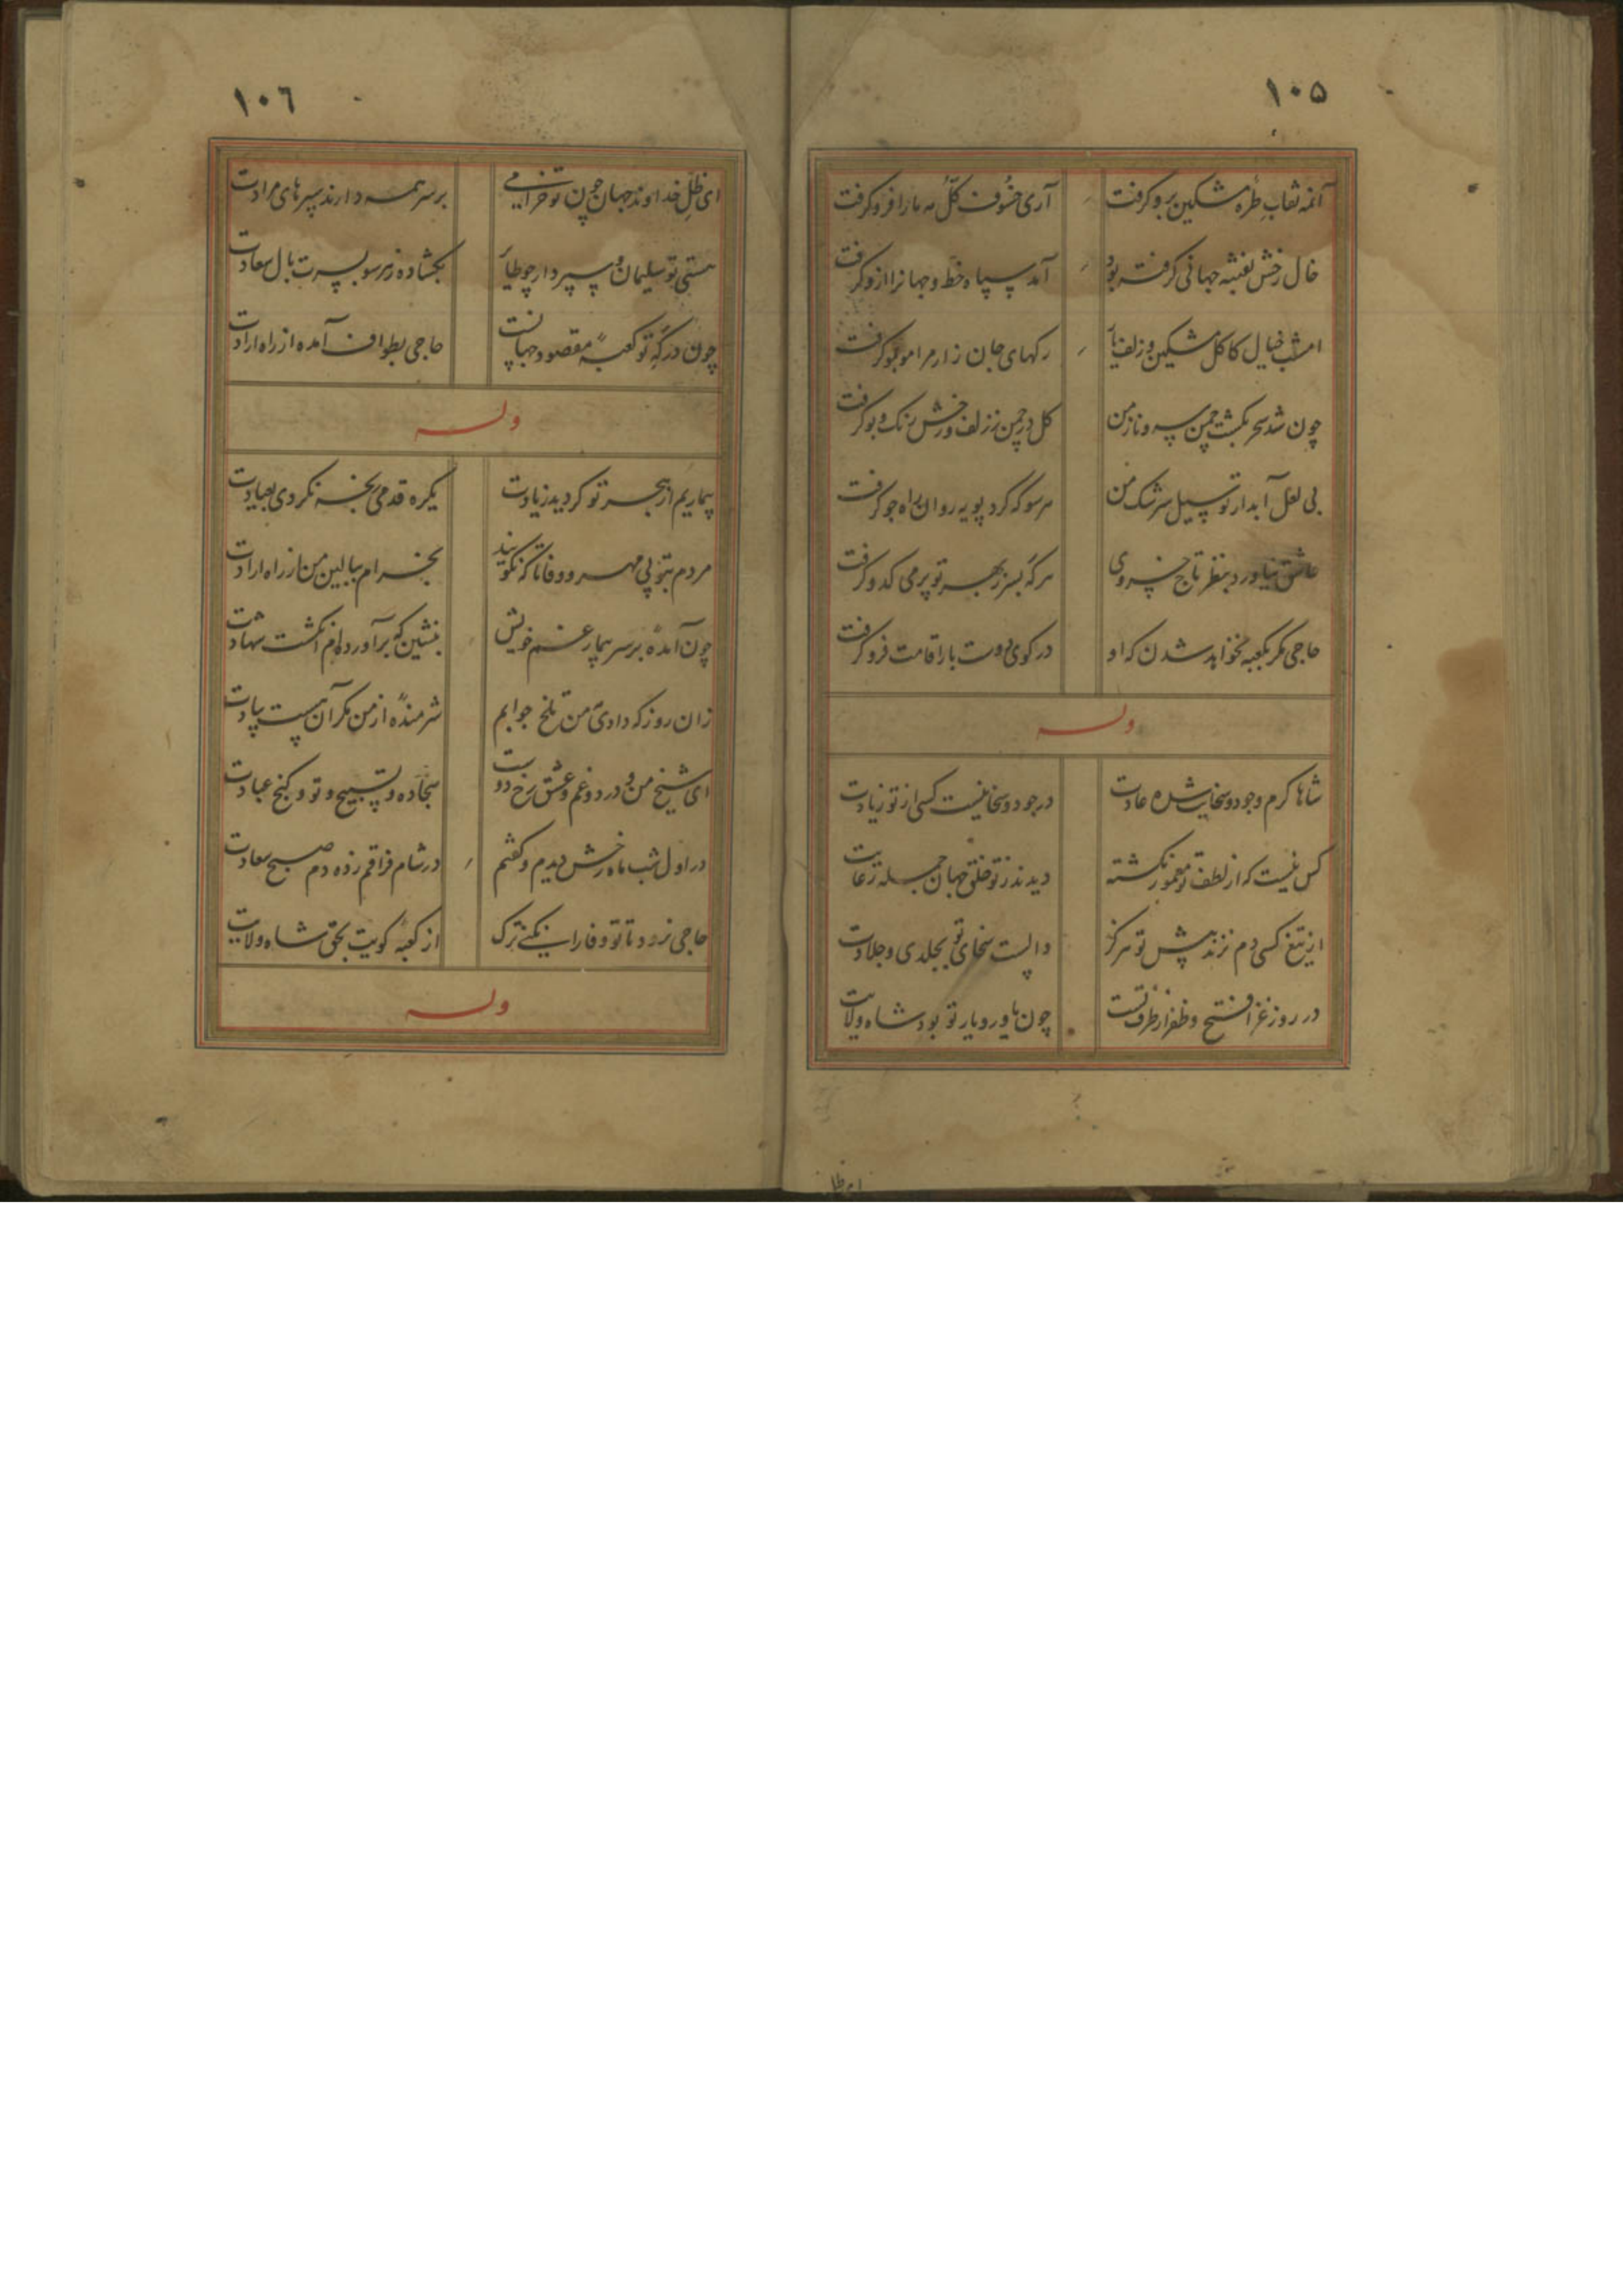 ۱۰۵
آنمه نقاب طره مشکین برو گرفت
آری خسوف کل مه ما را فرو گرفت
خال رخش بفتنه جهانی گرفته بود
آمد سپاه خط و جهانرا ازو گرفت
امشب خیال کاکل مشکین و زلف یار
رکهای جان زار مرا موبمو گرفت
چون شد سحر بکشت چمن سرو ناز من
کل در چمن ز زلف و رخش رنک و بو گرفت
بی لعل آبدار تو سیل سرشک من
هر سو که کرد پویه روان راه جو گرفت
عاشق نیاورد بنظر تاج خسروی
هر که بسر ز بهر تو پر می کدو گرفت
حاجی مکر بکعبه نخواهد شدن که او
در کوی دوست بار اقامت فرو گرفت
وله
شاها کرم و جود و سخایت شده عادت
در جود و سخا نیست کسی از تو زیادت
کس نیست که از لطف تو معمور نکشته
دیدند ز تو خلق جهان جمله رعایت
از تیغ کسی دم نزند پیش تو هرکز
دالست سخای تو بجلدی و جلادت
در روز غزا فتح و ظفر از طرف تست
چون یاور و یار تو بود شاه ولایت
ای ظل
۱۰۶
ای ظل خداوند جهان چون تو خرامی
بر سر همه دارند سپرهای مرادت
هستی تو سلیمان و سپردار چو طیار
بکشاده ز هر سو بسرت بال سعادت
چون درکه تو کعبه مقصود جهانست
حاجی بطواف آمده از راه ارادت
وله
بیماریم از هجر تو کردید زیادت
یکره قدمی رنجه نکردی بعیادت
مردم بتو بی مهر و وفا تا که نکویند
بخرام ببالین من از راه ارادت
چون آمده بر سر بیمار غم خویش
بنشین که برآورده‌ام انکشت شهادت
زان روز که دادی من تلخ جوابم
شرمنده از من مکر آن هست بیادت
ای شیخ من و درد و غم و عشق رخ دوست
سجاده و تسبیح و تو و کنج عبادت
در اول شب ماه رخش دیدم و کفتم
در شام فراقم زده دم صبح سعادت
حاجی نرود تا تو وفا را نکنی ترک
از کعبه کویت بحق شاه ولایت
وله